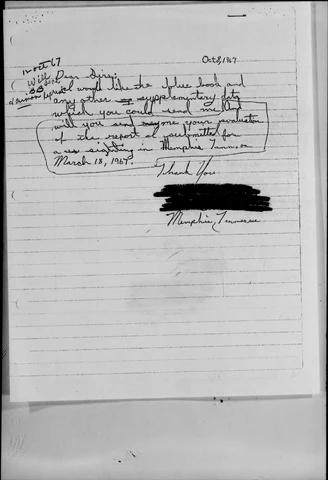 Oct 8, 1967
12 Oct 67
Dear Sirs:
I would like the blue book and
any other supplementary data
which you could send me. And
will you send me your evaluation
of the report I submitted for
a sighting in Memphis Tenn. on
March 18, 1967.
Thank You
Memphis, Tennessee